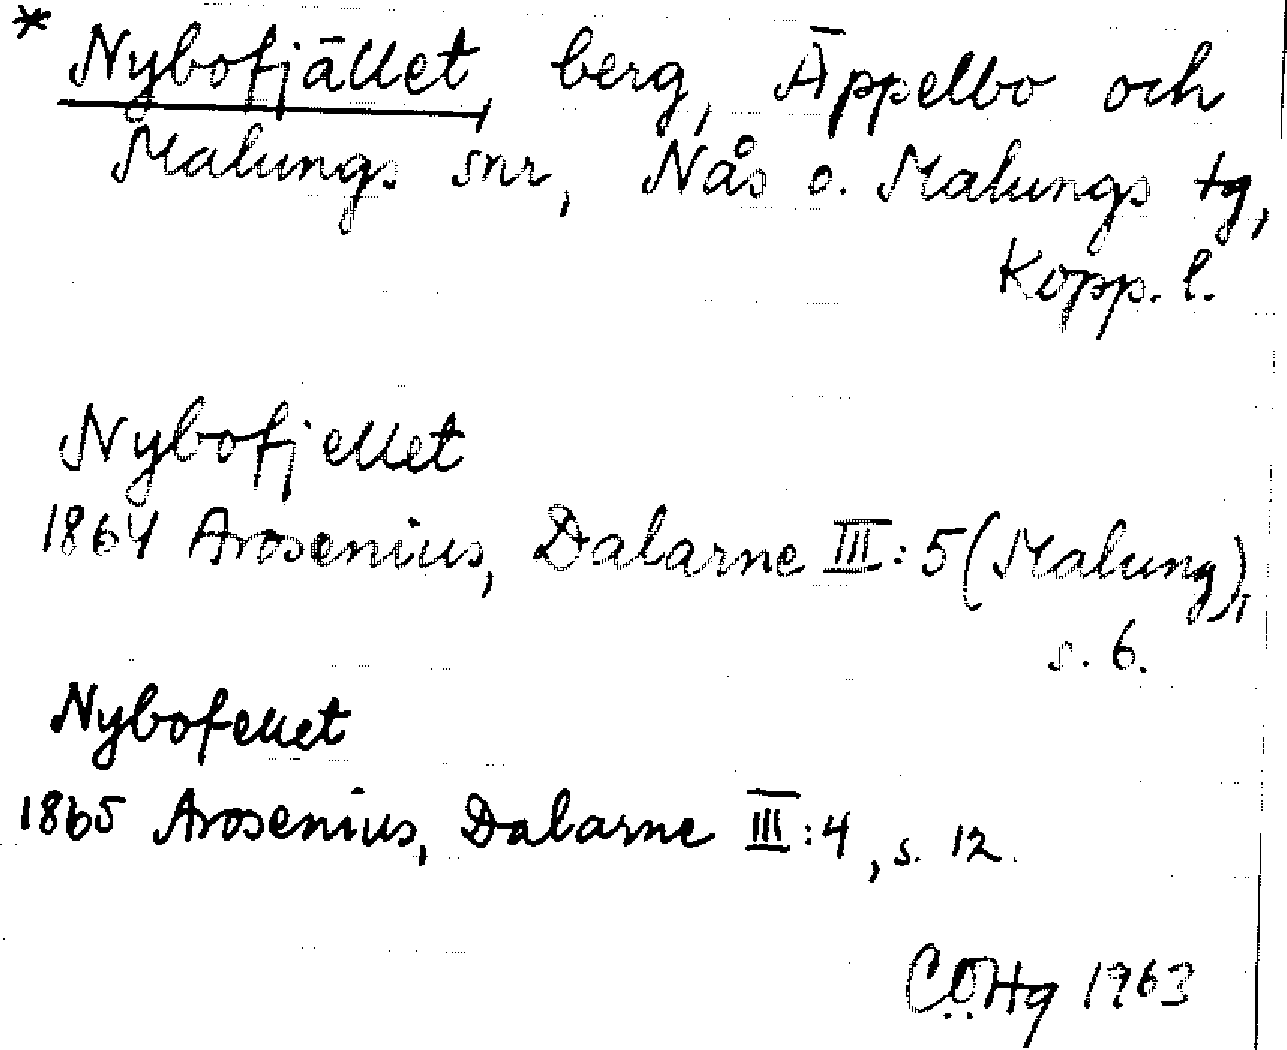 * Nybofjället, berg, Äppelbo och
Malungs snr, Nås o. Malungs tg,
Kopp. l.
Nybofjellet
1864 Arosenius, Dalarne III:5 (Malung),
s. 6.
Nybofellet
1865 Arosenius, Dalarne III:4, s. 12.
CÖHg 1963